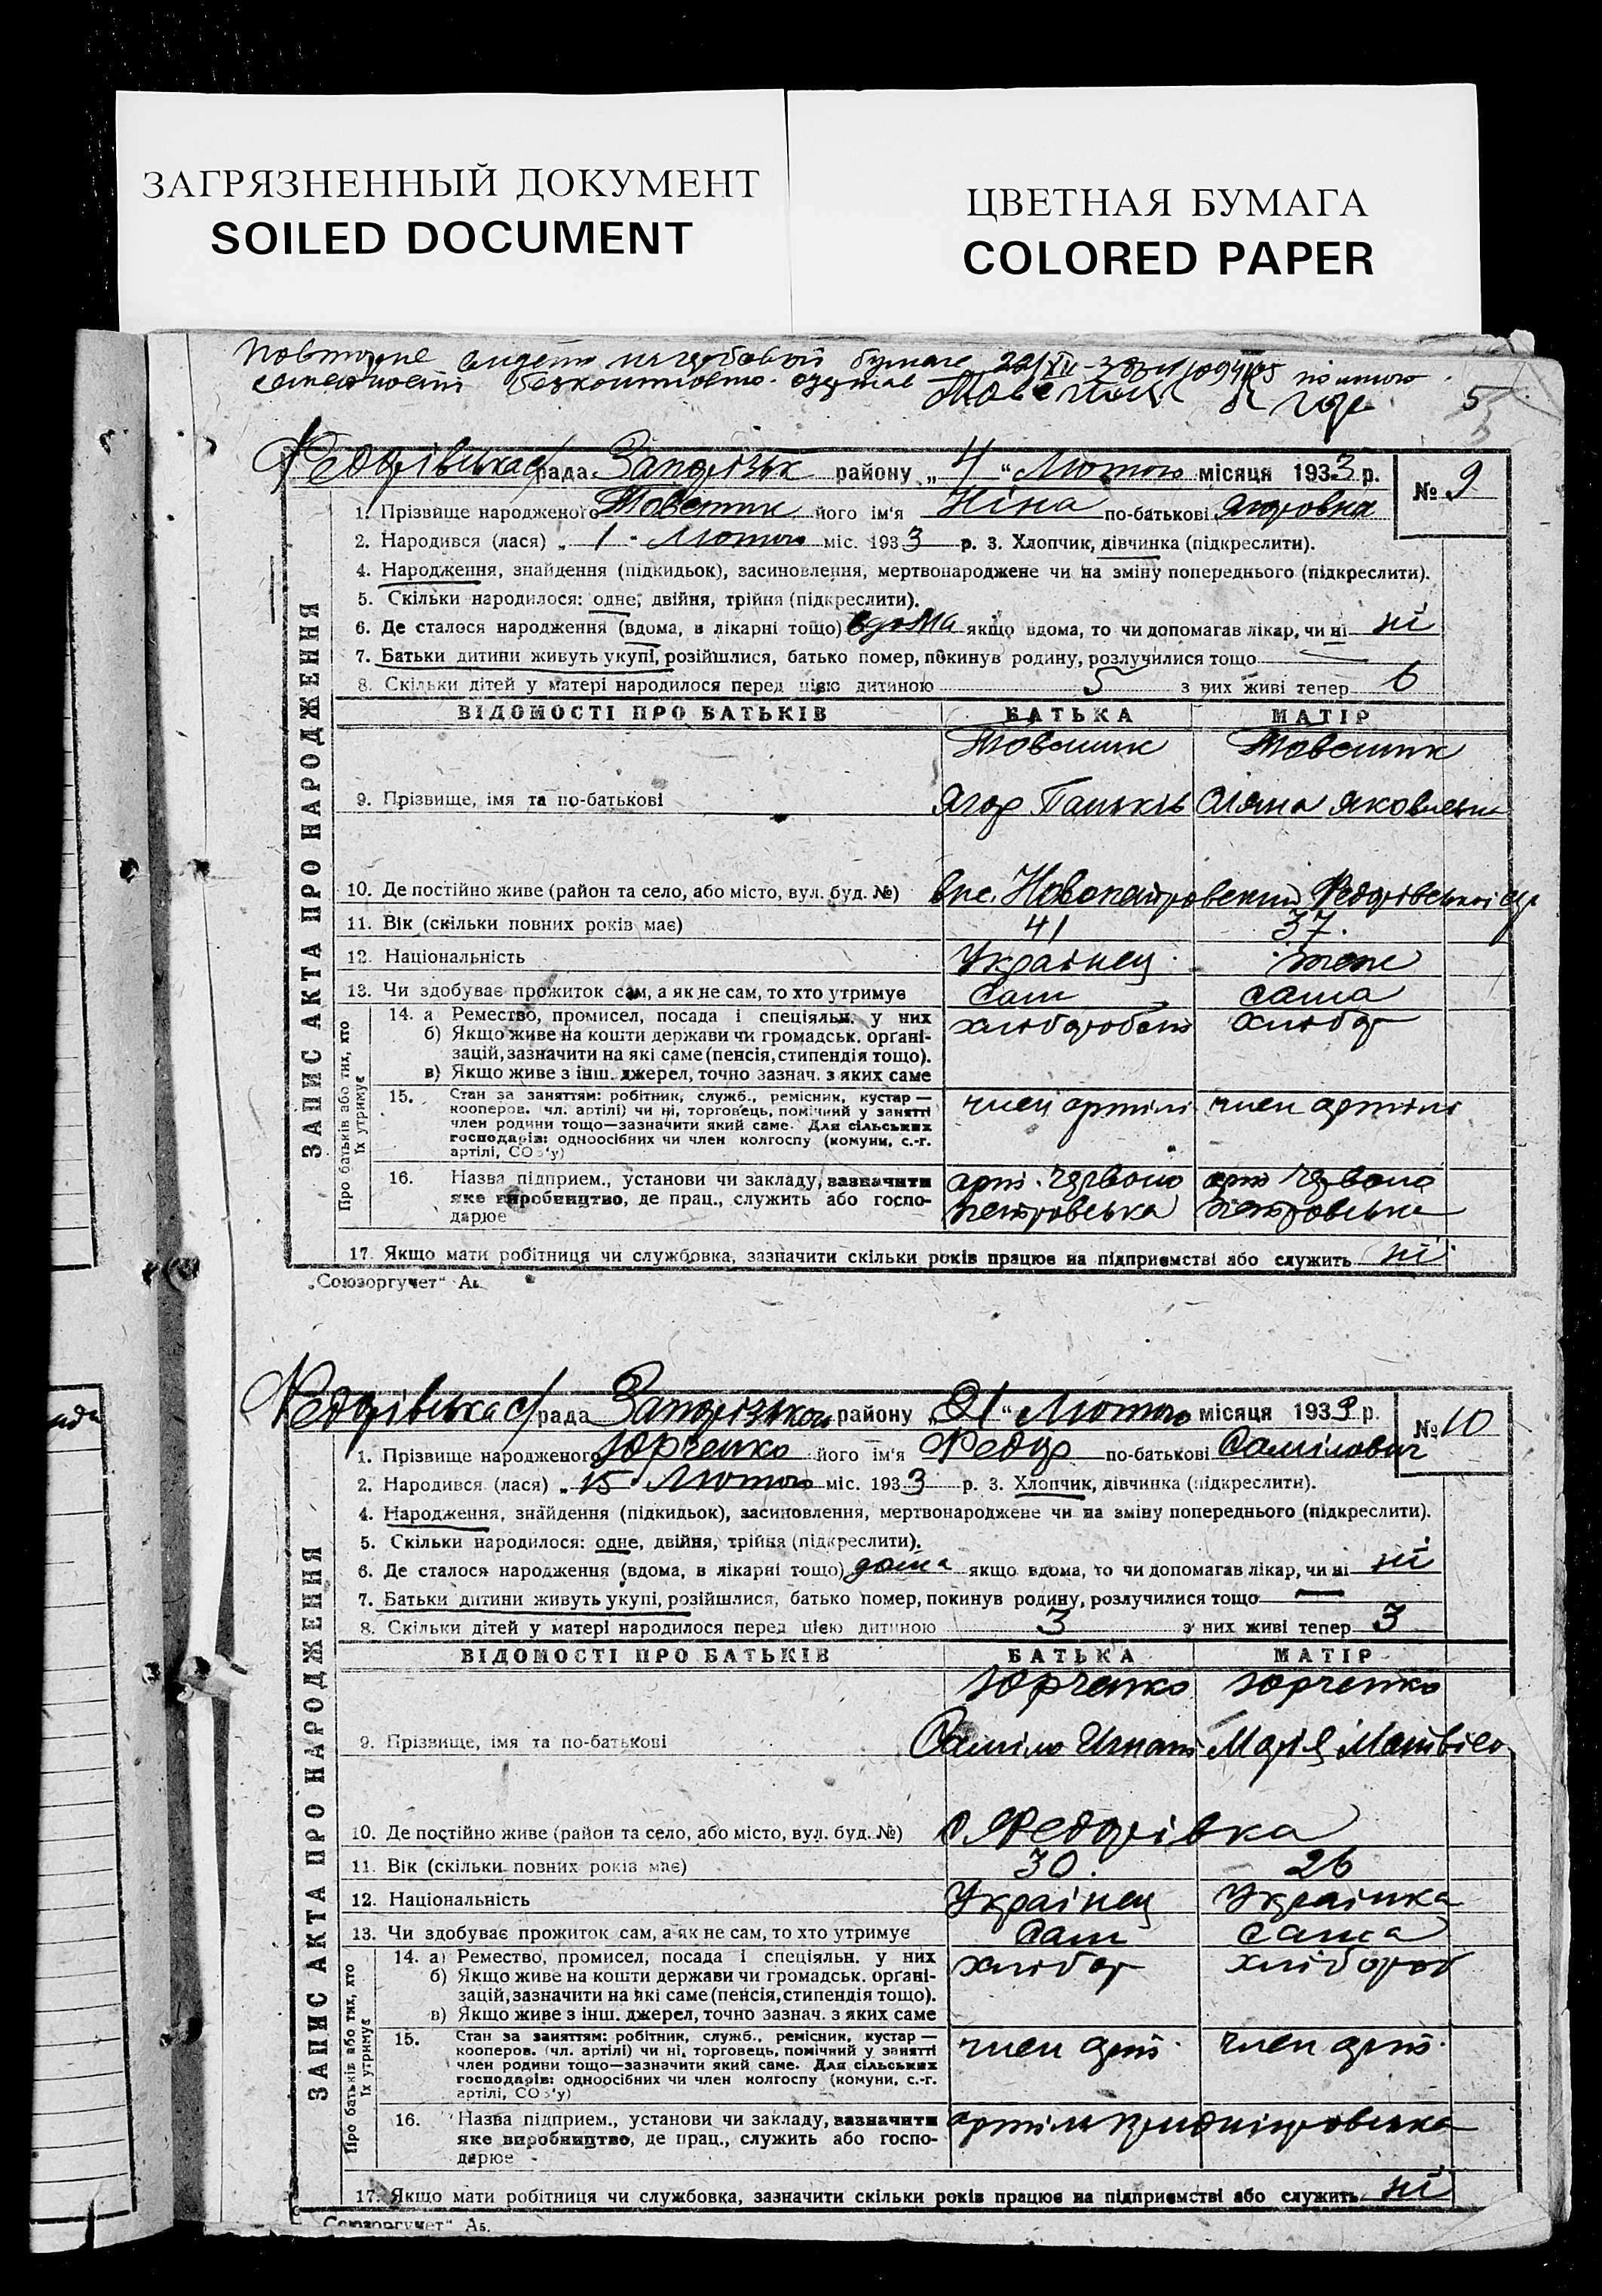 ЗАГРЯЗНЕННЫЙ ДОКУМЕНТ
SOILED DOCUMENT
ЦВЕТНАЯ БУМАГА
COLORED PAPER
бумаге 22/XII
5
Федорівська с/рада Запорізьк району „4“ Лютого місяця 1933 р.
№ 9
1. Прізвище народженого Товстик його ім'я Ніна по-батькові Ягоровна
2. Народився (лася) „1“ Лютого міс. 1933 р. 3. Хлопчик, дівчинка (підкреслити).
4. Народження, знайдення (підкидьок), засиновлення, мертвонароджене чи на зміну попереднього (підкреслити).
5. Скільки народилося: одне, двійня, трійня (підкреслити).
6. Де сталося народження (вдома, в лікарні тощо) вдома якщо вдома, то чи допомагав лікар, чи ні ні
7. Батьки дитини живуть укупі, розійшлися, батько помер, покинув родину, розлучилися тощо
8. Скільки дітей у матері народилося перед цією дитиною 5 з них живі тепер 6
ЗАПИС АКТА ПРО НАРОДЖЕННЯ
ВІДОМОСТІ ПРО БАТЬКІВ БАТЬКА МАТІР
Товстик Товстик
9. Прізвище, імя та по-батькові Ягор Яковлевна
10. Де постійно живе (район та село, або місто, вул. буд. №) Федорівської с/р
11. Вік (скільки повних років має) 41 37
12. Національність Украінец тоже
13. Чи здобуває прожиток сам, а як не сам, то хто утримує Сам сама
Про батьків або тих, хто їх утримує
14. а Ремество, промисел, посада і спеціяльн. у них хлібороб хлібор
б) Якщо живе на кошти держави чи громадськ. органі-
зацій, зазначити на які саме (пенсія, стипендія тощо).
в) Якщо живе з інш. джерел, точно зазнач. з яких саме
15. Стан за заняттям: робітник, служб., ремісник, кустар — член артілі член артілі
кооперов. чл. артілі) чи ні, торговець, помічний у занятті
член родини тощо—зазначити який саме. Для сільських
господарів: одноосібних чи член колгоспу (комуни, с.-г.
артілі, СОЗ'у)
16. Назва підприєм., установи чи закладу, зазначити арт. Червоно арт Червоно
яке виробництво, де прац., служить або госпо- петровська петровська
дарює
17. Якщо мати робітниця чи службовка, зазначити скільки років працює на підприємстві або служить ні
„Союзоргучет“
Федорівська с/рада Запорізького району „21“ Лютого місяця 1933 р.
№ 10
1. Прізвище народженого Юрченко його ім'я Федор по-батькові Самілович
2. Народився (лася) „15“ Лютого міс. 1933 р. 3. Хлопчик, дівчинка (підкреслити).
4. Народження, знайдення (підкидьок), засиновлення, мертвонароджене чи на зміну попереднього (підкреслити).
5. Скільки народилося: одне, двійня, трійня (підкреслити).
6. Де сталося народження (вдома, в лікарні тощо) дома якщо вдома, то чи допомагав лікар, чи ні ні
7. Батьки дитини живуть укупі, розійшлися, батько помер, покинув родину, розлучилися тощо
8. Скільки дітей у матері народилося перед цією дитиною 3 з них живі тепер 3
ЗАПИС АКТА ПРО НАРОДЖЕННЯ
ВІДОМОСТІ ПРО БАТЬКІВ БАТЬКА МАТІР
Юрченко Юрченко
9. Прізвище, імя та по-батькові Саміло Игнат Марія Матвієв
10. Де постійно живе (район та село, або місто, вул. буд. №) с Федорівка
11. Вік (скільки повних років має) 30. 26
12. Національність Украінец Украінка
13. Чи здобуває прожиток сам, а як не сам, то хто утримує Сам сама
Про батьків або тих, хто їх утримує
14. а) Ремество, промисел, посада і спеціяльн. у них хлібор хлібороб
б) Якщо живе на кошти держави чи громадськ. органі-
зацій, зазначити на які саме (пенсія, стипендія тощо).
в) Якщо живе з інш. джерел, точно зазнач. з яких саме
15. Стан за заняттям: робітник, служб., ремісник, кустар — член арт. член арт.
кооперов. (чл. артілі) чи ні, торговець, помічний у занятті
член родини тощо—зазначити який саме. Для сільських
господарів: одноосібних чи член колгоспу (комуни, с.-г.
артілі, СОЗ'у)
16. Назва підприєм., установи чи закладу, зазначити артіль придніпровська
яке виробництво, де прац., служить або госпо-
дарює
17. Якщо мати робітниця чи службовка, зазначити скільки років працює на підприємстві або служить ні
„Союзоргучет“